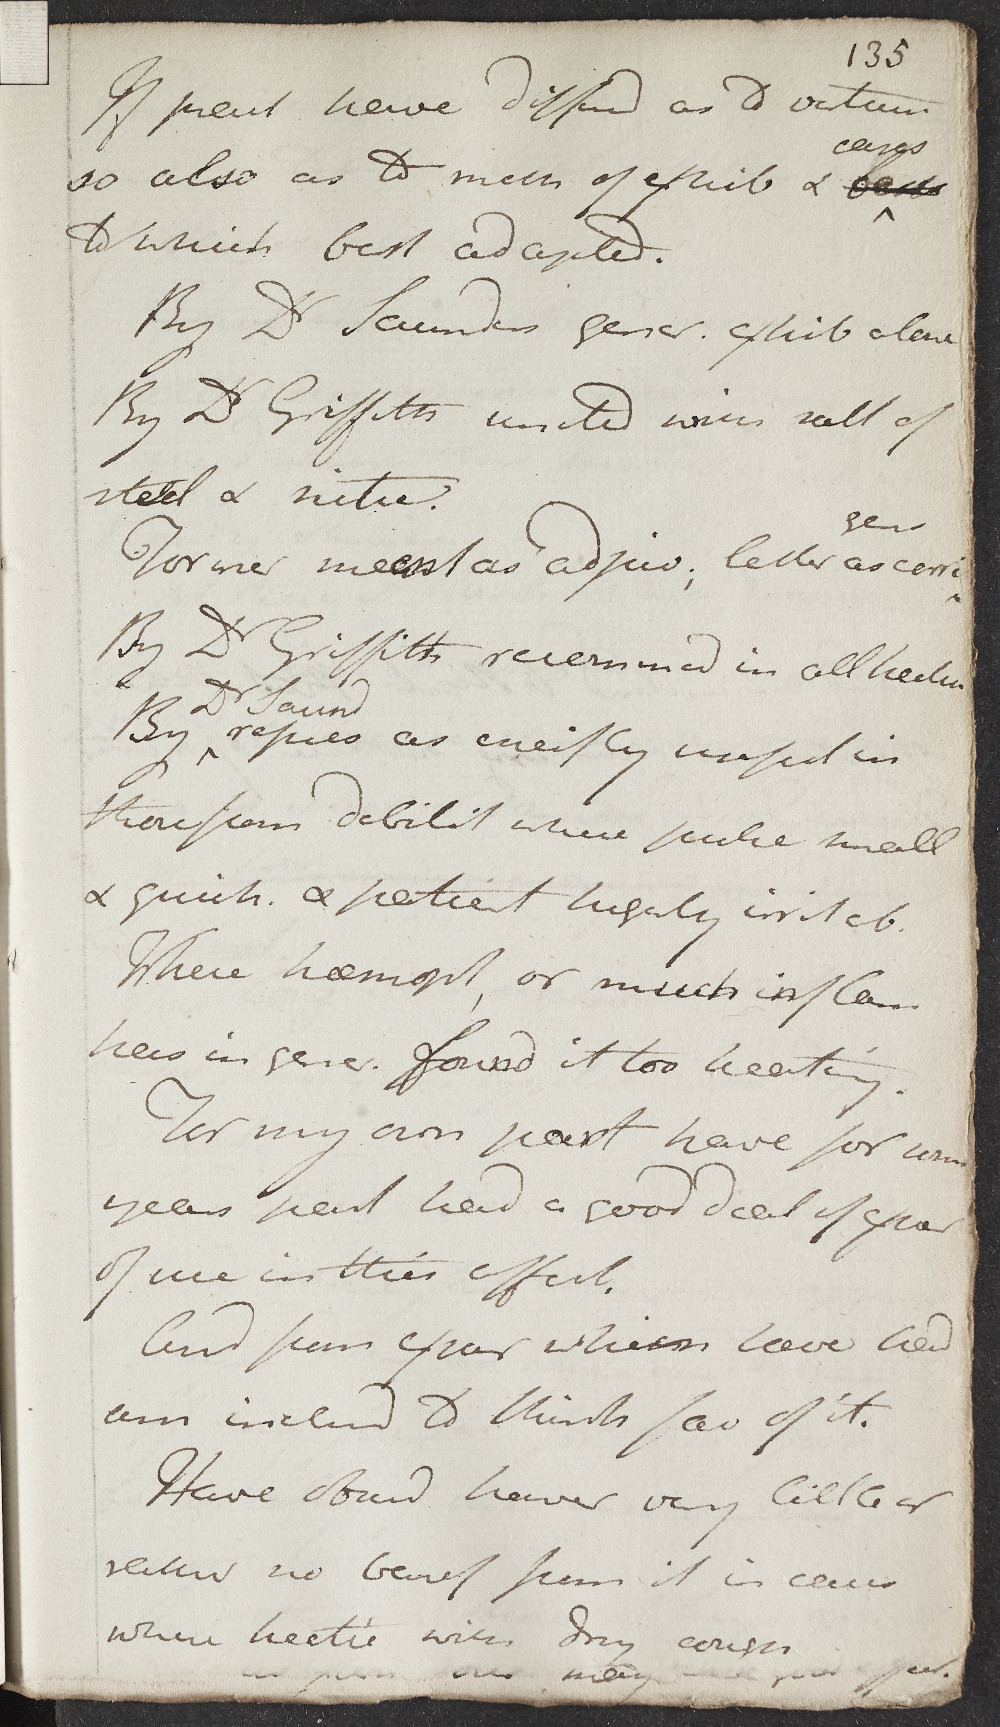 135
If pract have differd as to virtues
cases
so also as to meth of exhib &
to which best adapted.
By Dr Saunders gener. exhib alone
By Dr Griffiths united with salt of
steel & nitre.
gens
Former meant as adjuv; latter as corri
By Dr Griffiths recommed in all hectic
Dr Saund
By as cheifly usefull in
debilit where pulse small
& quick. & patient highly irritab.
Where hæmopt, or much inflam
has in gener. found it too heating.
For my own part have for some
years past had a good deal of exper
of use in this affect.
And from exper which have had
am inclind to think fav of it.
Have observd however very little or
rather no benef from it in cases
where hectic with dry cough
may